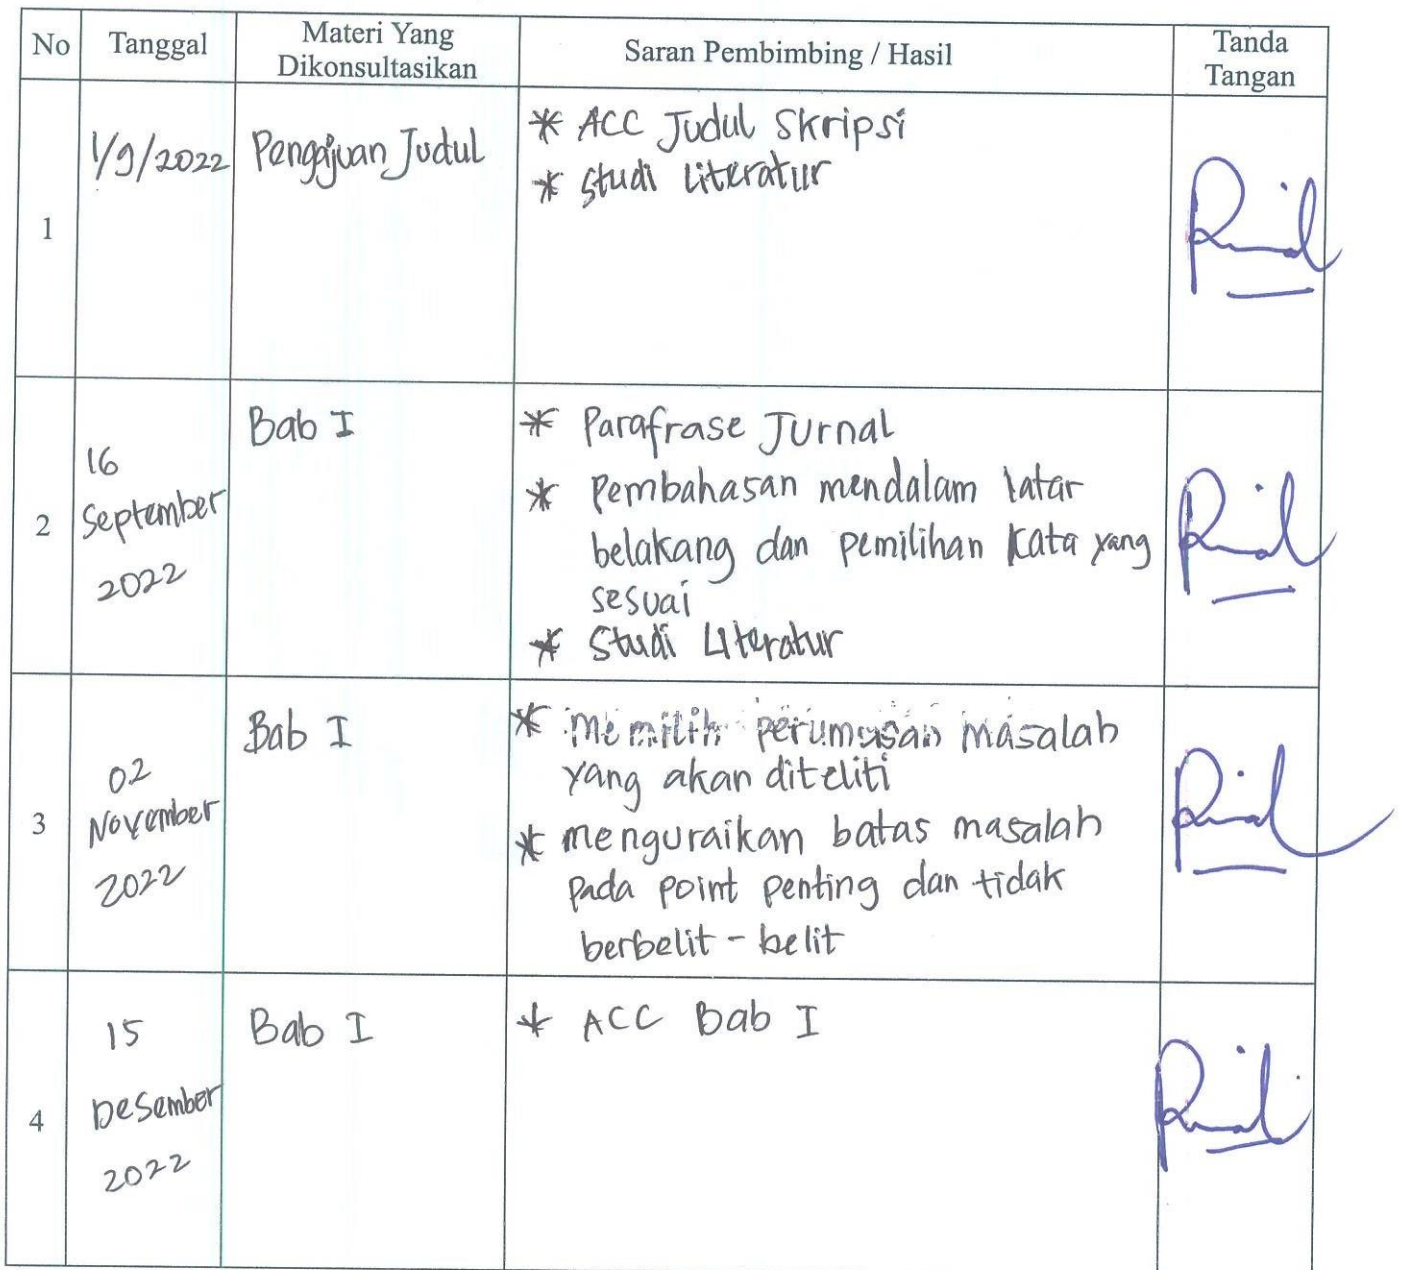 No Tanggal Materi Yang Dikonsultasikan Saran Pembimbing / Hasil Tanda Tangan
1
1/9/2022
Pengajuan Judul
* ACC Judul Skripsi
* Studi Literatur
2
16
September
2022
Bab I
* Parafrase Jurnal
* Pembahasan mendalam latar
belakang dan pemilihan kata yang
sesuai
* Studi Literatur
3
02
November
2022
Bab I
* Memilih perumusan masalah
yang akan diteliti
* menguraikan batas masalah
pada point penting dan tidak
berbelit - belit
4
15
Desember
2022
Bab I
* ACC Bab I